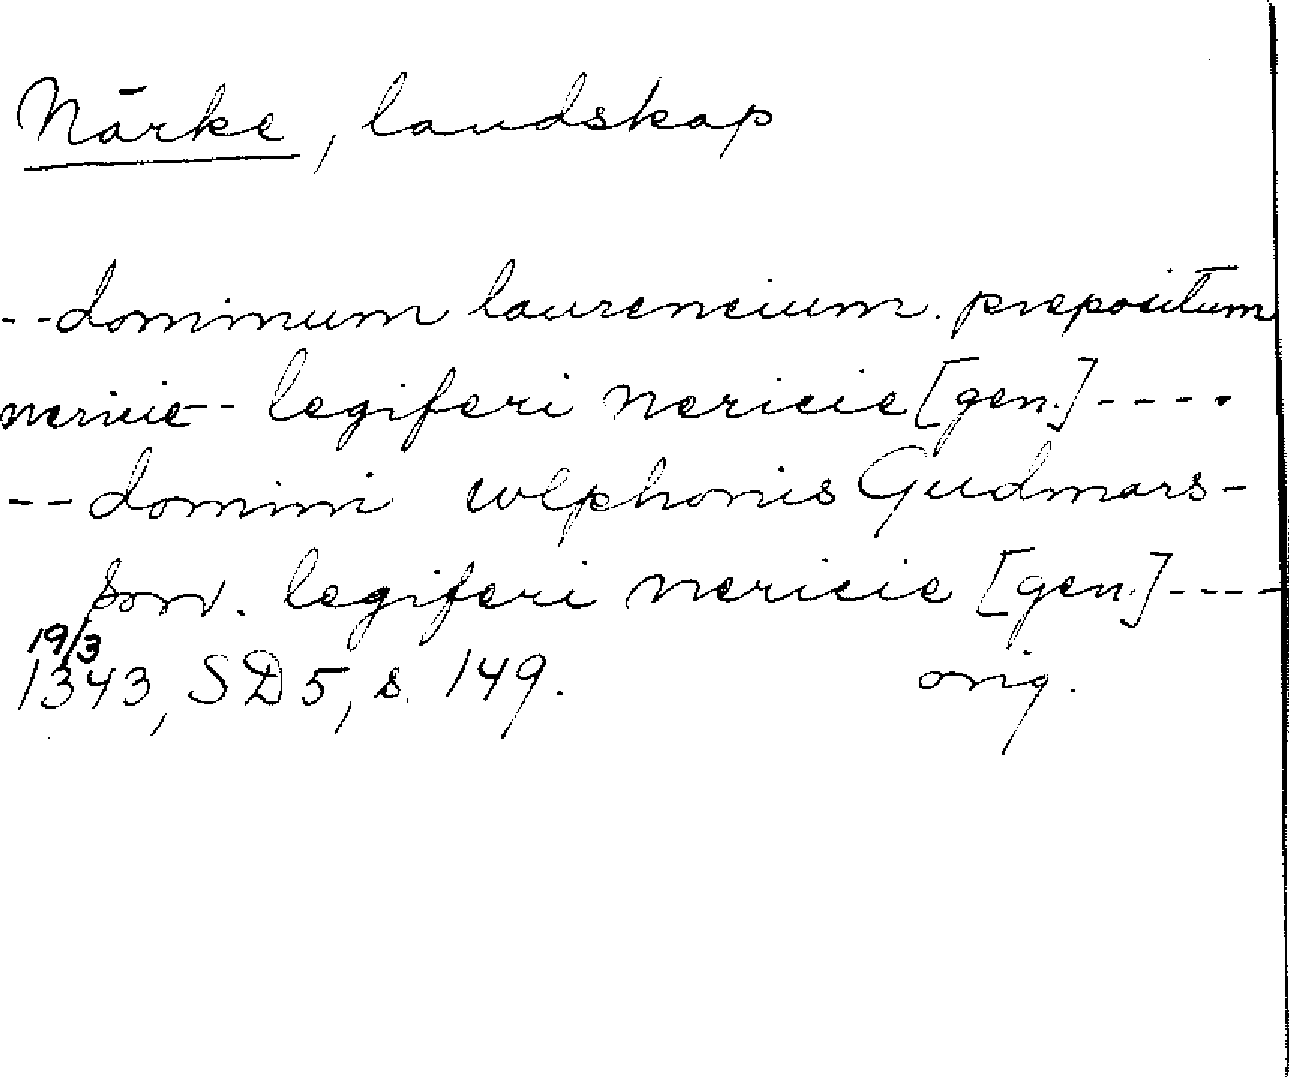 Närke, landskap
--dominum laurencium. prepositum
nericie-- legiferi nericie [gen.]----
--domini wlphonis Gudmars-
son. legiferi nericie [gen.]----
19/3
1343, SD 5, s. 149. orig.